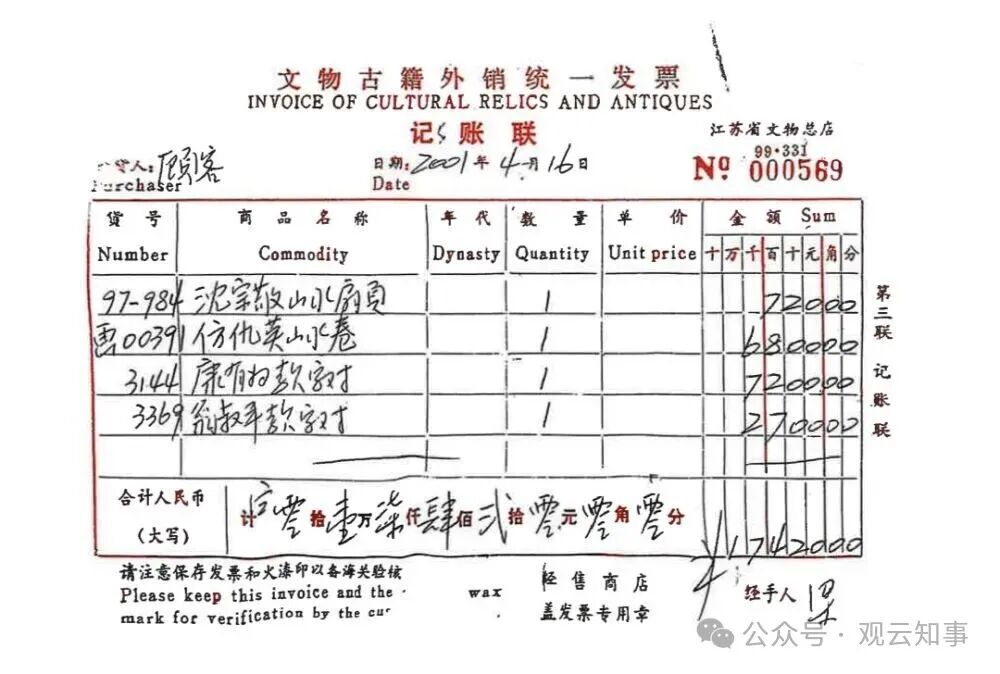 文物古籍外销统一发票
INVOICE OF CULTURAL RELICS AND ANTIQUES
记账联
江苏省文物总店
99·331
Nº 000569
人: 顾客
Purchaser
日期: 2001年4月16日
Date
货号 商品名称 年代 数量 单价 金额 Sum
Number Commodity Dynasty Quantity Unit price 十万千百十元角分
97-984 沈宗敬山水扇頁 1 72000
画00391 仿仇英山水卷 1 680000
3144 康有为款字对 1 720000
3369 翁叔平款字对 1 270000
合计人民币
(大写)
计 零拾壹万柒仟肆佰弍拾零元零角零分
¥1742000
第三联 记账联
请注意保存发票和火漆印以备海关验核
Please keep this invoice and the wax
mark for verification by the cus
经售商店
盖发票专用章
经手人
公众号·观云知事